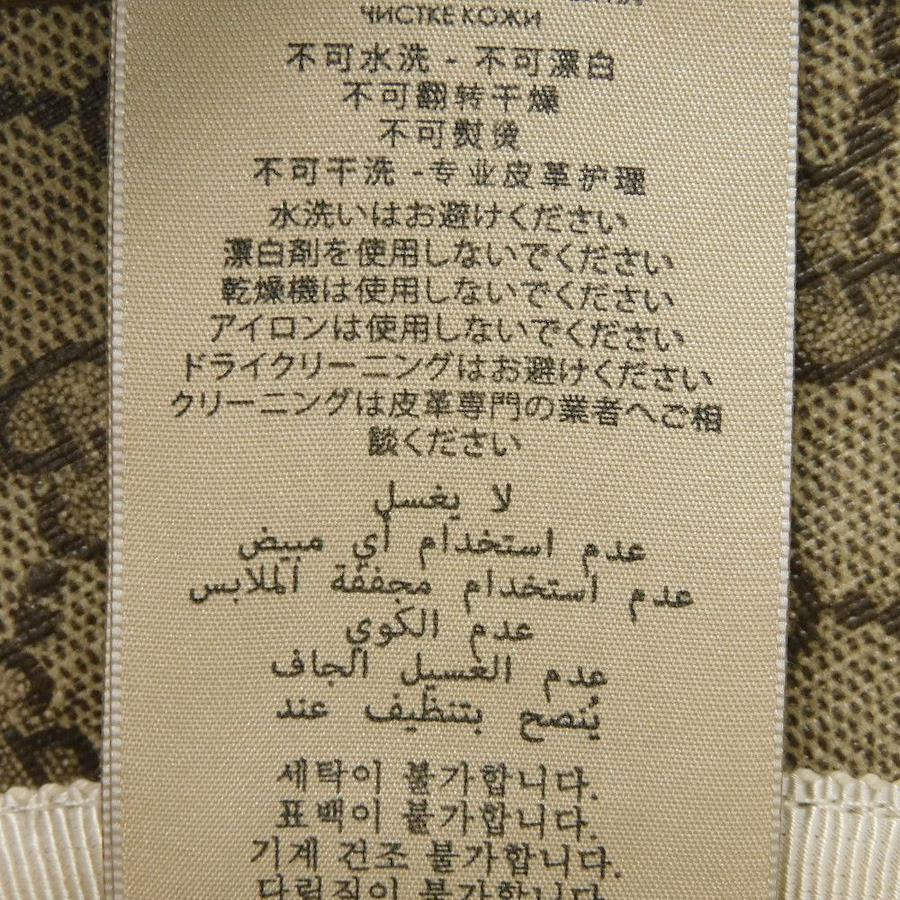 ЧИСТКЕ КОЖИ
不可水洗 - 不可漂白
不可翻转干燥
不可熨烫
不可干洗 -专业皮革护理
水洗いはお避けください
漂白剤を使用しないでください
乾燥機は使用しないでください
アイロンは使用しないでください
ドライクリーニングはお避けください
クリーニングは皮革専門の業者へご相
談ください
لا يغسل
عدم استخدام أي مبيض
عدم استخدام مجففة الملابس
عدم الكوي
عدم الغسيل الجاف
يُنصح بتنظيف عند
세탁이 불가합니다.
표백이 불가합니다.
기계 건조 불가합니다.
다림질이 불가합니다